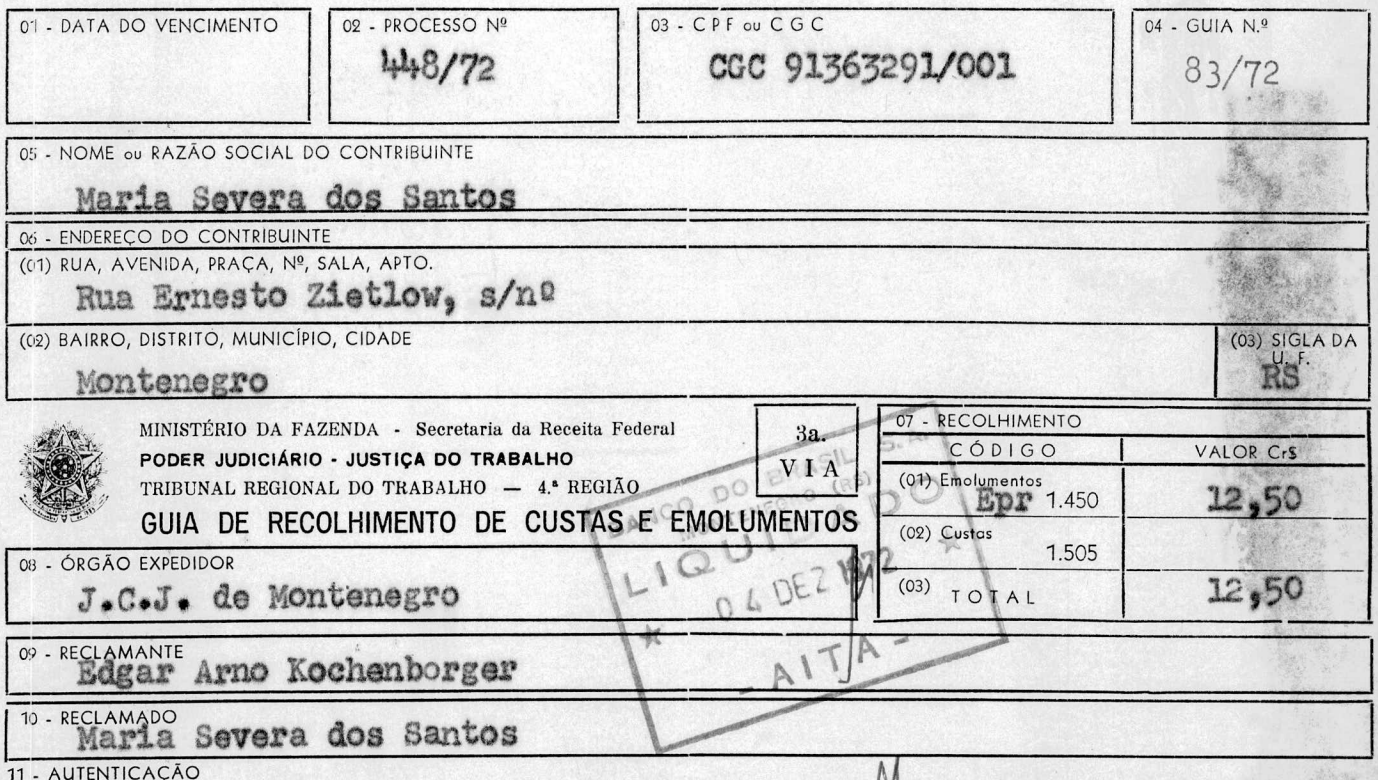 01 - DATA DO VENCIMENTO
02 - PROCESSO Nº
448/72
03 - CPF ou CGC
CGC 91363291/001
04 - GUIA N.º
83/72
05 - NOME ou RAZÃO SOCIAL DO CONTRIBUINTE
Maria Severa dos Santos
06 - ENDEREÇO DO CONTRIBUINTE
(01) RUA, AVENIDA, PRAÇA, Nº, SALA, APTO.
Rua Ernesto Zietlow, s/nº
(02) BAIRRO, DISTRITO, MUNICÍPIO, CIDADE
Montenegro
(03) SIGLA DA
U. F.
RS
MINISTÉRIO DA FAZENDA - Secretaria da Receita Federal
PODER JUDICIÁRIO - JUSTIÇA DO TRABALHO
TRIBUNAL REGIONAL DO TRABALHO — 4.ª REGIÃO
GUIA DE RECOLHIMENTO DE CUSTAS E EMOLUMENTOS
3a.
VIA
07 - RECOLHIMENTO
CÓDIGO
VALOR Cr$
(01) Emolumentos
Epr 1.450
12,50
(02) Custas
1.505
(03) TOTAL
12,50
BANCO DO BRASIL S.A.
MONTENEGRO (RS)
LIQUIDADO
04 DEZ 1972
- AITA -
08 - ÓRGÃO EXPEDIDOR
J.C.J. de Montenegro
09 - RECLAMANTE
Edgar Arno Kochenborger
10 - RECLAMADO
Maria Severa dos Santos
11 - AUTENTICAÇÃO